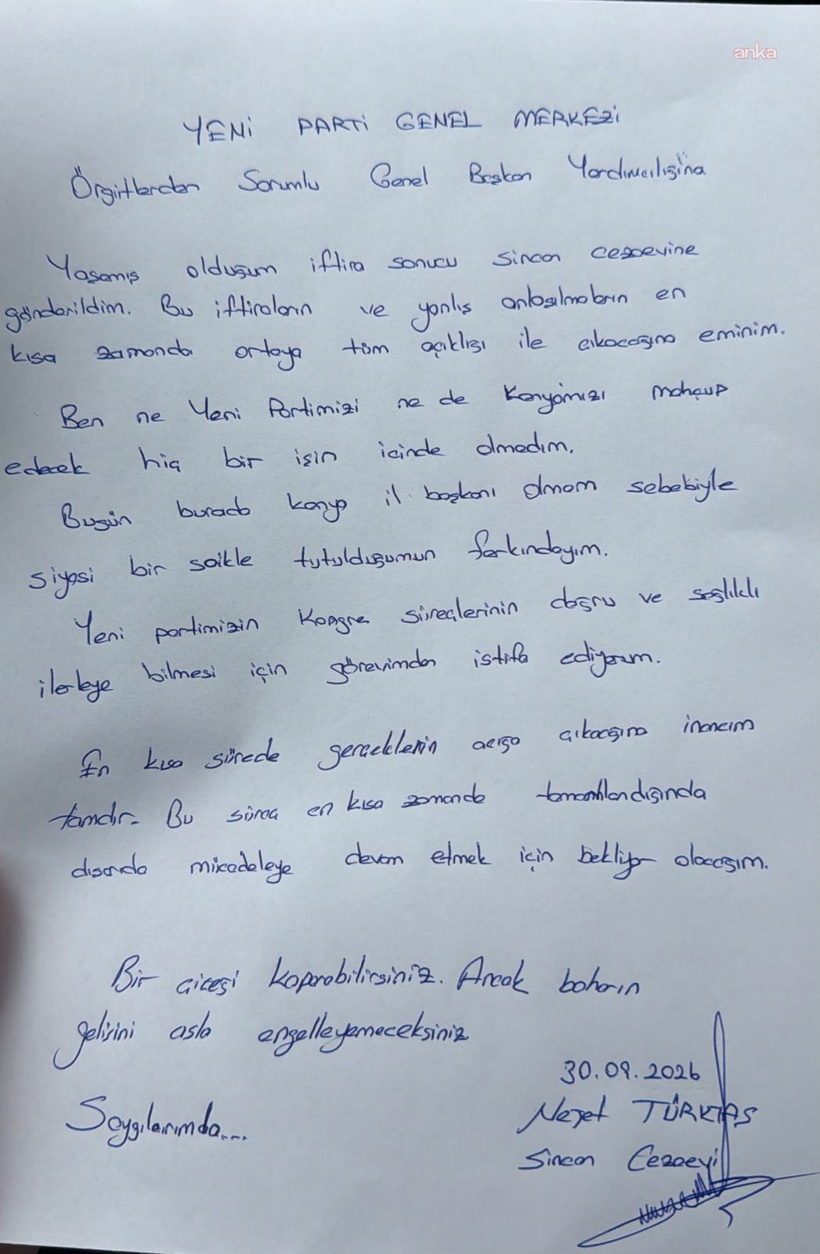 anka
YENİ PARTİ GENEL MERKEZİ
Örgütlerden Sorumlu Genel Başkan Yardımcılığı'na
Yaşamış olduğum iftira sonucu sincan cezaevine
gönderildim. Bu iftiraların ve yanlış anlaşılmaların en
kısa zamanda ortaya tüm açıklığı ile çıkacağına eminim.
Ben ne Yeni Partimizi ne de Konyamızı mahçup
edecek hiç bir işin içinde olmadım.
Bugün burada konya il başkanı olmam sebebiyle
siyasi bir saikle tutulduğumun farkındayım.
Yeni partimizin Kongre süreçlerinin doğru ve sağlıklı
ilerleye bilmesi için görevimden istifa ediyorum.
En kısa sürede gerçeklerin açığa çıkacağına inancım
tamdır. Bu süreç en kısa zamanda tamamlandığında
dışarıda mücadeleye devam etmek için bekliyor olacağım.
Bir çiçeği koparabilirsiniz. Ancak baharın
gelişini asla engelleyemeceksiniz
30.09.2026
Saygılarımda...
TÜRKTAŞ
Sincan Cezaevi